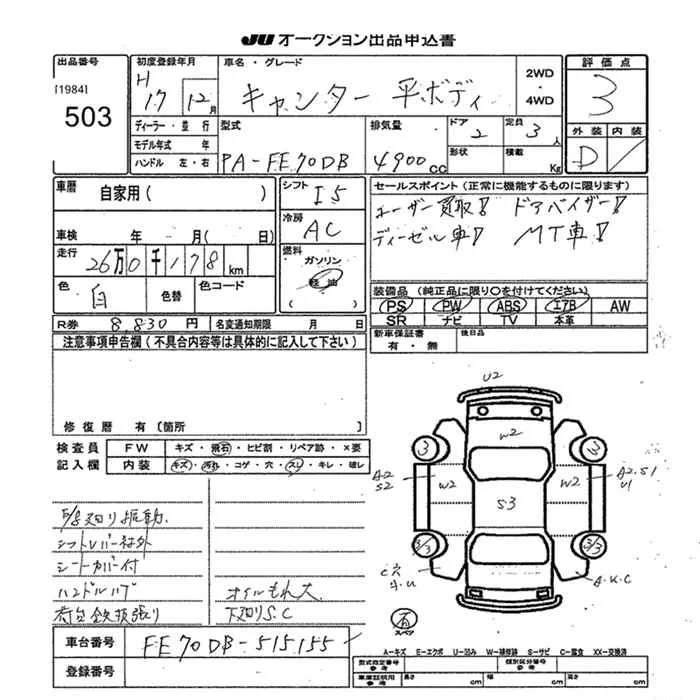 JU オークション出品申込書
出品番号
[1984]
503
初度登録年月
H 17 12月
車名・グレード
キャンター 平ボディ
2WD
・
4WD
評価点
3
外装 内装
D
ディーラー・並行
モデル年式 年
ハンドル 左・右
型式
PA-FE70DB
排気量
4900cc
ドア
2
形状
定員
3人
積載
Kg
車歴
自家用( )
車検 年 月( 日)
走行
26万0千178km
色
白
色替
色コード
シフト
I5
冷房
AC
燃料
ガソリン
軽油
セールスポイント(正常に機能するものに限ります)
ユーザー買取! ドアバイザー!
ディーゼル車! MT車!
装備品(純正品に限り〇を付けてください)
PS PW ABS エアB AW
SR ナビ TV 本革
新車保証書
有・無
後日品
R券 8,830円
名変通知期限 月 日
注意事項申告欄(不具合内容等は具体的に記入して下さい)
修復暦 有〔箇所 〕
検査員
記入欄
FW キズ・飛石・ヒビ割・リペア跡・×要
内装 キズ・汚れ・コゲ・穴・スレ・キレ・破レ
シートカバー付
オイルもれ大
下廻りS.C
荷台鉄板張り
U2
W2
3
3
A2
S2
W2
S3
W2
A2.S1
U1
3/3
3/3
A.K.C
スペア
車台番号
FE70DB-515155
登録番号
A—キズ E—エクボ U—凹み W—補修跡 S—サビ C—腐食 XX—交換済
型式指定番号
参考
類別区分番号
参考
車庫証明用
参考
長さ cm
幅 cm
高さ cm